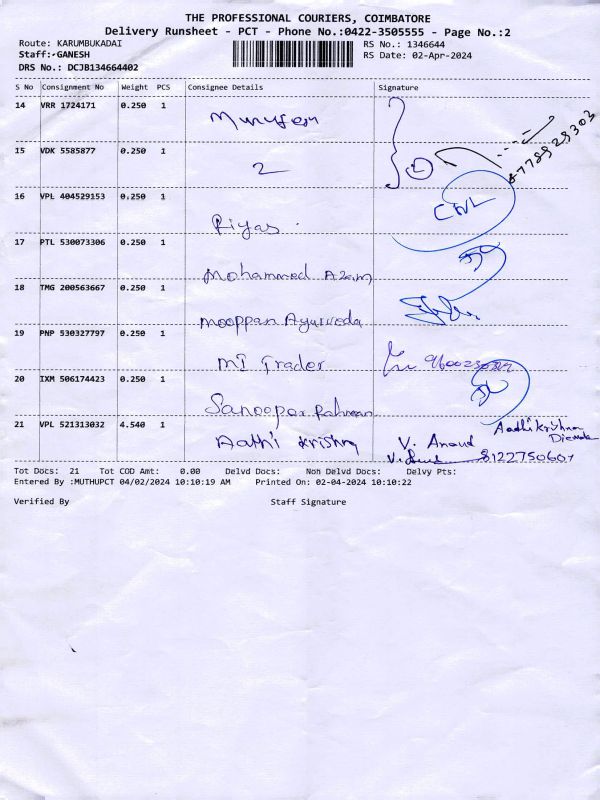 THE PROFESSIONAL COURIERS, COIMBATORE
Delivery Runsheet - PCT - Phone No.:0422-3505555 - Page No.:2
Route: KARUMBUKADAI RS No.: 1346644
Staff:-GANESH RS Date: 02-Apr-2024
DRS No.: DCJB134664402
S No Consignment No Weight PCS Consignee Details Signature
14 VRR 1724171 0.250 1 Murugesn
8778929303
15 VDK 5585877 0.250 1 2 2
16 VPL 404529153 0.250 1 Riyas. CNL
17 PTL 530073306 0.250 1 Mohammed Azam
18 TMG 200563667 0.250 1 Mooppan Ayurveda
19 PNP 530327797 0.250 1 MI Trader
20 IXM 506174423 0.250 1 Sanoopar Rahman
21 VPL 521313032 4.540 1 Aathi Krishna V. Anand Aadhikrishna
8122750607
Tot Docs: 21 Tot COD Amt: 0.00 Delvd Docs: Non Delvd Docs: Delvy Pts:
Entered By :MUTHUPCT 04/02/2024 10:10:19 AM Printed On: 02-04-2024 10:10:22
Verified By Staff Signature